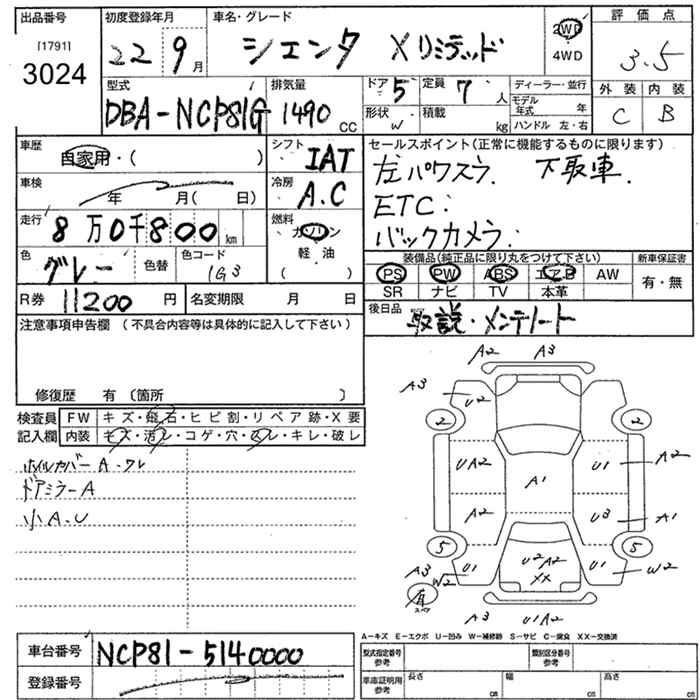 出品番号
[1791]
3024
初度登録年月
22 9月
車名・グレード
シエンタ Xリミテッド
2WD
4WD
評価点
3.5
外装 内装
C B
型式
DBA-NCP81G
排気量
1490 CC
ドア 5
定員 7人
形状 W
積載 kg
ディーラー・並行
モデル年式 年
ハンドル 左・右
車歴
自家用・( )
シフト
IAT
車検
年 月( 日)
冷房
A.C
走行
8万0千800km
燃料
ガソリン
軽油
( )
色
グレー
色替
色コード
1G3
セールスポイント(正常に機能するものに限ります)
左パワスラ. 下取車.
ETC.
バックカメラ.
装備品(純正品に限り丸をつけて下さい)
新車保証書
PS PW ABS エアB AW
SR ナビ TV 本革
有・無
R券 11200円
名変期限 月 日
後日品
取説・メンテノート
注意事項申告欄 (不具合内容等は具体的に記入して下さい)
修復歴 有 〔箇所 〕
検査員
記入欄
FW キズ・飛石・ヒビ割・リペア跡・X要
内装 キズ・汚レ・コゲ・穴・スレ・キレ・破レ
ホイルカバーA.ワレ
ドアミラーA
小A.U
A2 A3
A3 U2
2 2
UA2 A1 U1 A2
A2 U3 A1
5 5
A3 W2 U1 U2 A2 XX U1 W2
有
スペア
A3 U1A2
A-キズ E-エクボ U-凹み W-補修跡 S-サビ C-腐食 XX-交換済
車台番号
NCP81-5140000
登録番号
型式指定番号
参考
類別区分番号
参考
車庫証明用
参考
長さ cm
幅 cm
高さ cm